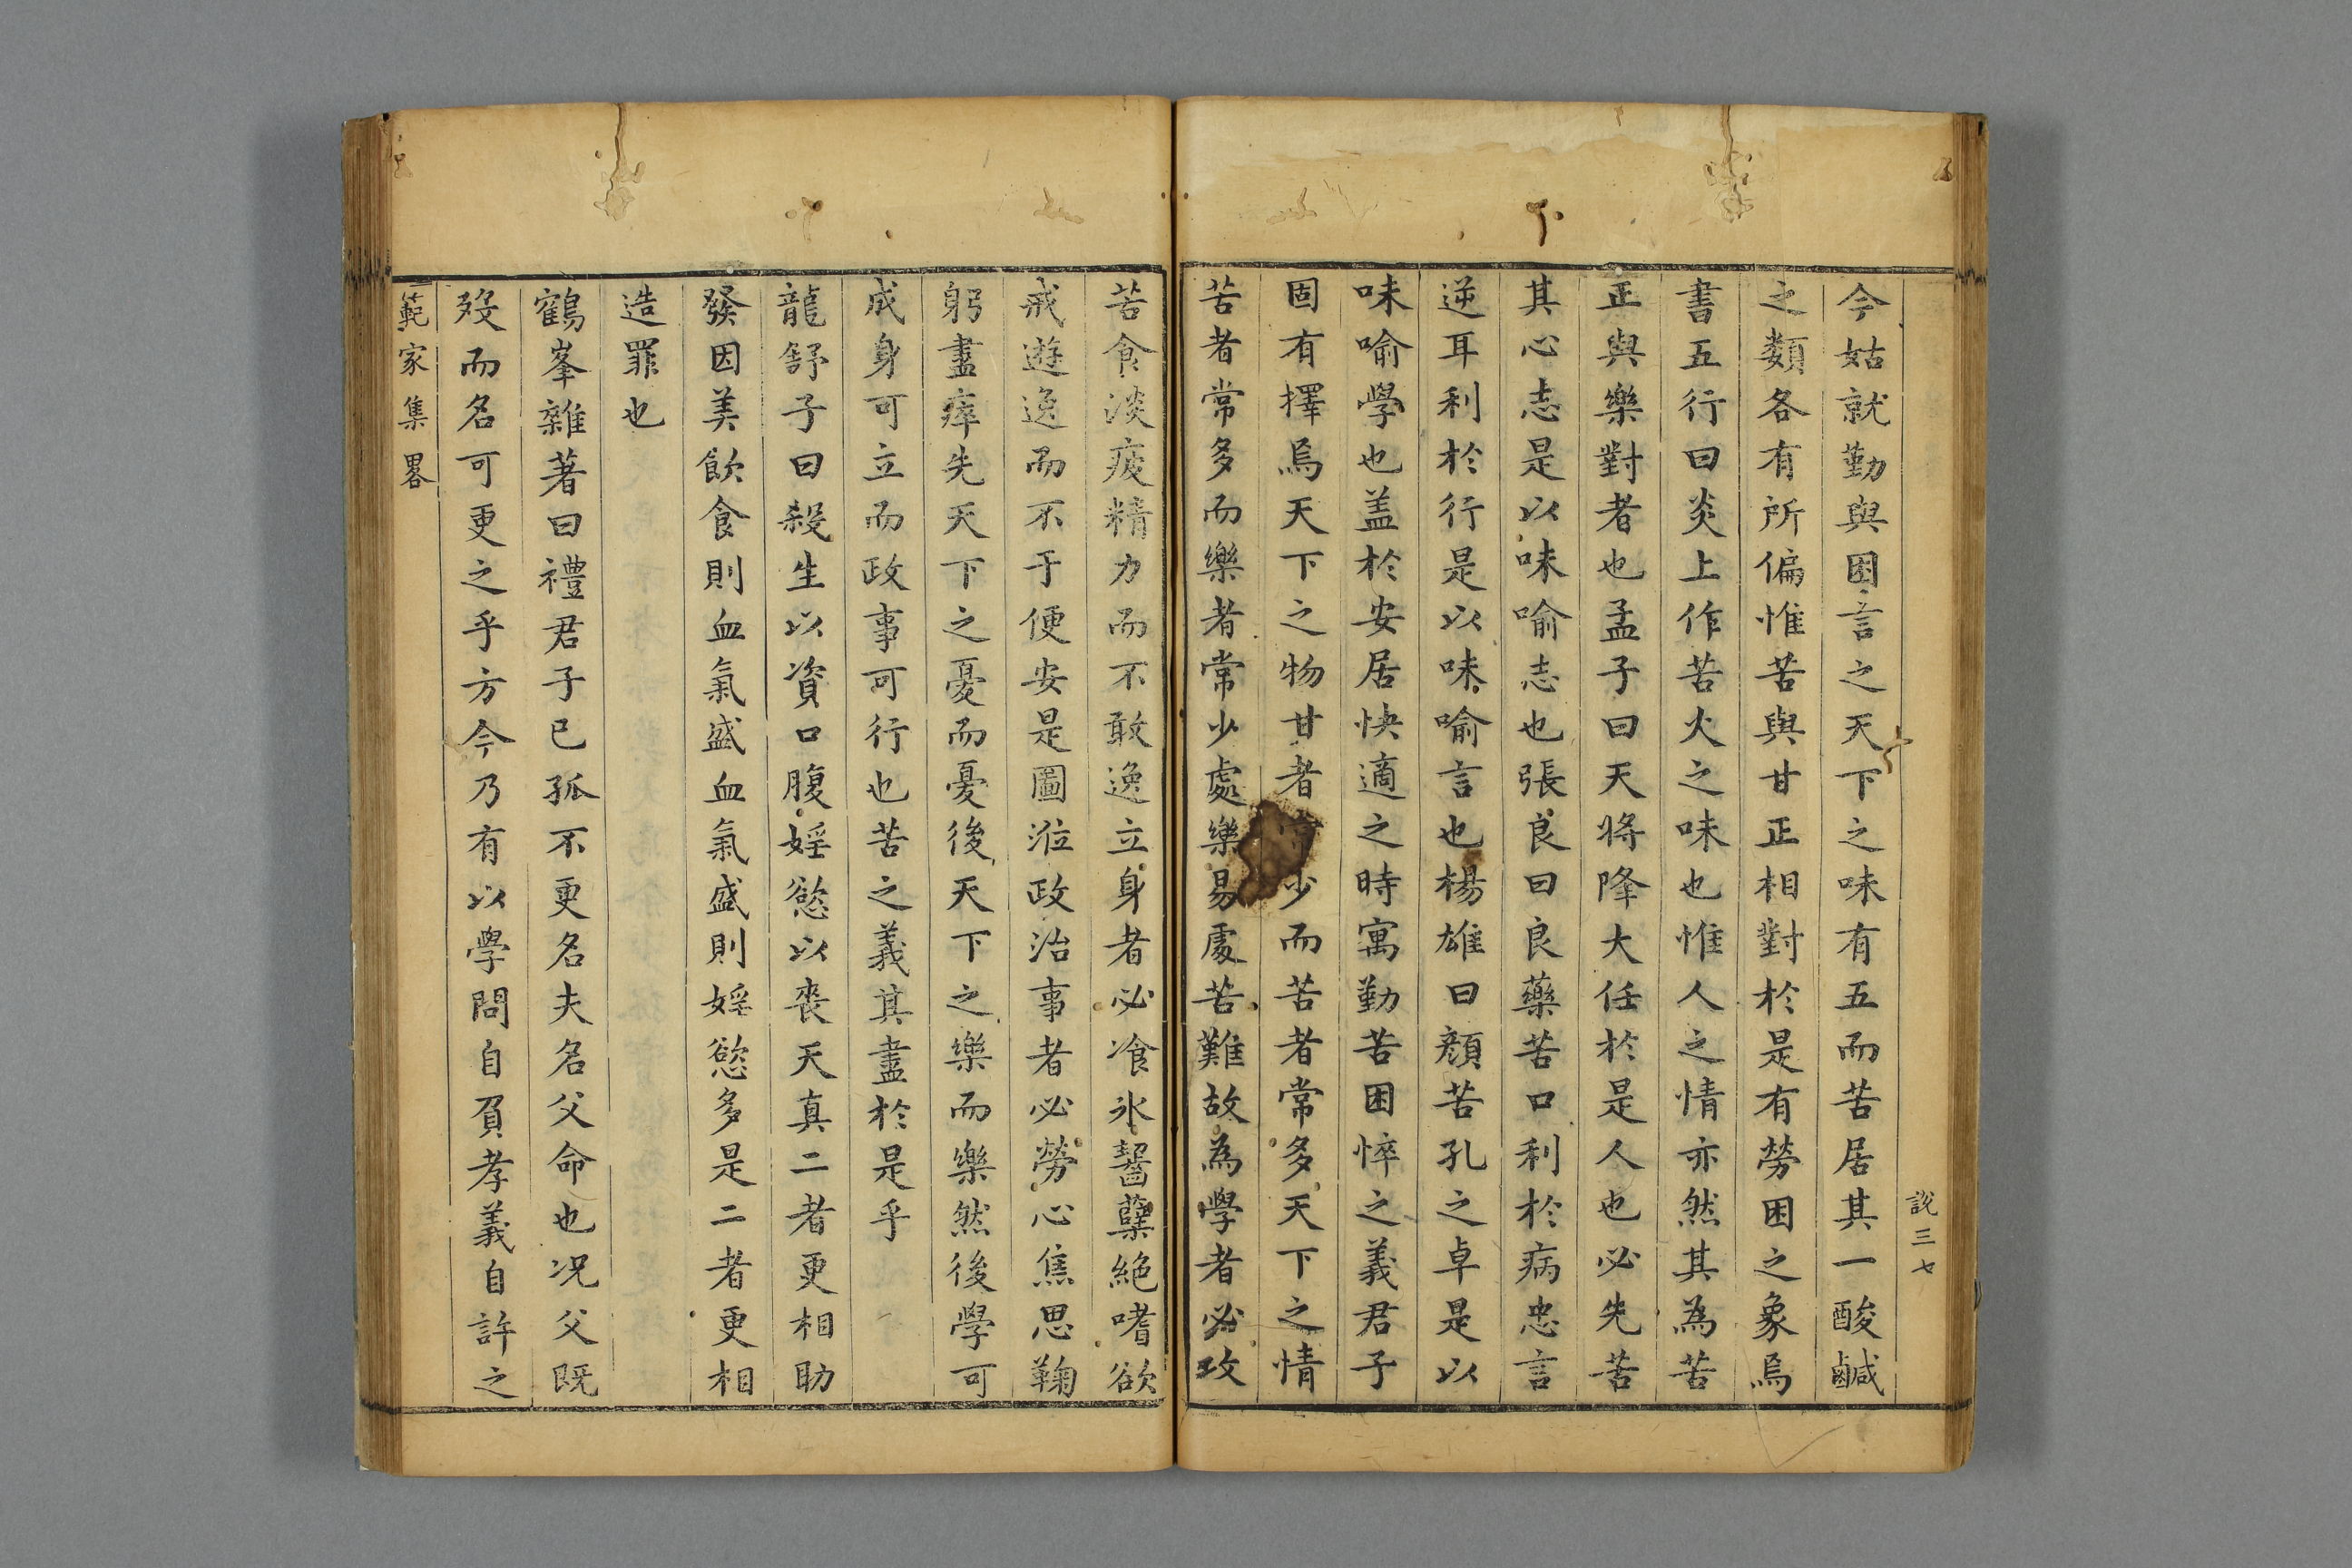 說三七
今姑就勤與困言之天下之味有五而苦居其一酸鹹
之類各有所偏惟苦與甘正相對於是有勞困之象焉
書五行曰炎上作苦火之味也惟人之情亦然其為苦
正與樂對者也孟子曰天將降大任於是人也必先苦
其心志是以味喻志也張良曰良藥苦口利於病忠言
逆耳利於行是以味喻言也楊雄曰顏苦孔之卓是以
味喻學也盖於安居快適之時寓勤苦困悴之義君子
固有擇焉天下之物甘者少而苦者常多天下之情
苦者常多而樂者常少處樂易處苦難故為學者必攻
苦食淡疲精力而不敢逸立身者必飡氷齧蘗絕嗜欲
戒遊逸而不于便安是圖涖政治事者必勞心焦思鞠
躬盡瘁先天下之憂而憂後天下之樂而樂然後學可
成身可立而政事可行也苦之義其盡於是乎
龍舒子曰殺生以資口腹婬慾以喪天真二者更相助
發因美飲食則血氣盛血氣盛則婬慾多是二者更相
造罪也
鶴峯雜著曰禮君子已孤不更名夫名父命也况父既
歿而名可更之乎方今乃有以學問自負孝義自許之
範家集畧